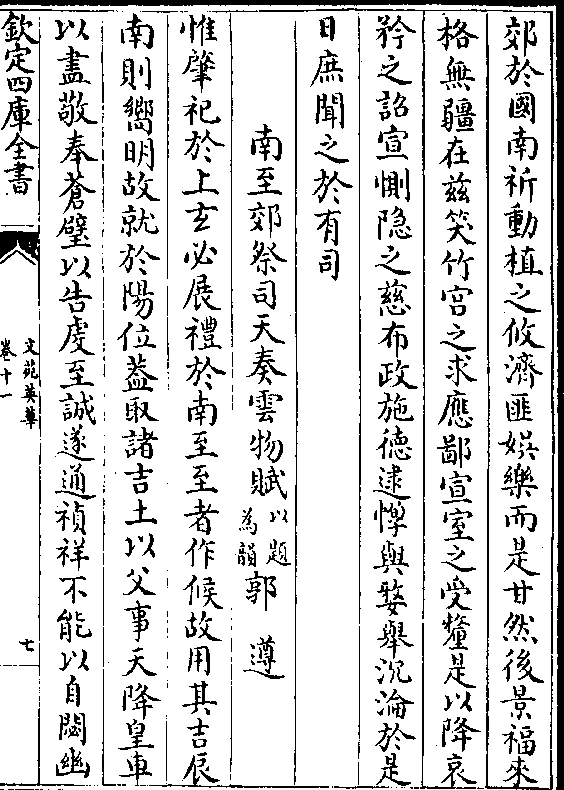 郊於國南祈動植之攸濟匪娛樂而是甘然後景福來
格無疆在兹笑竹宫之求應鄙宣室之受釐是以降哀
矜之詔宣惻隐之慈布政施德逮惸與嫠舉沉淪於是
日庶聞之於有司
南至郊祭司天奏雲物賦以題為韻郭遵
惟肇祀於上玄必展禮於南至至者作候故用其吉辰
南則嚮明故就於陽位葢取諸吉土以父事天降皇車
以盡敬奉蒼璧以告䖍至誠遂通禎祥不能以自閟幽
欽定四庫全書
文苑英華
卷十一
七